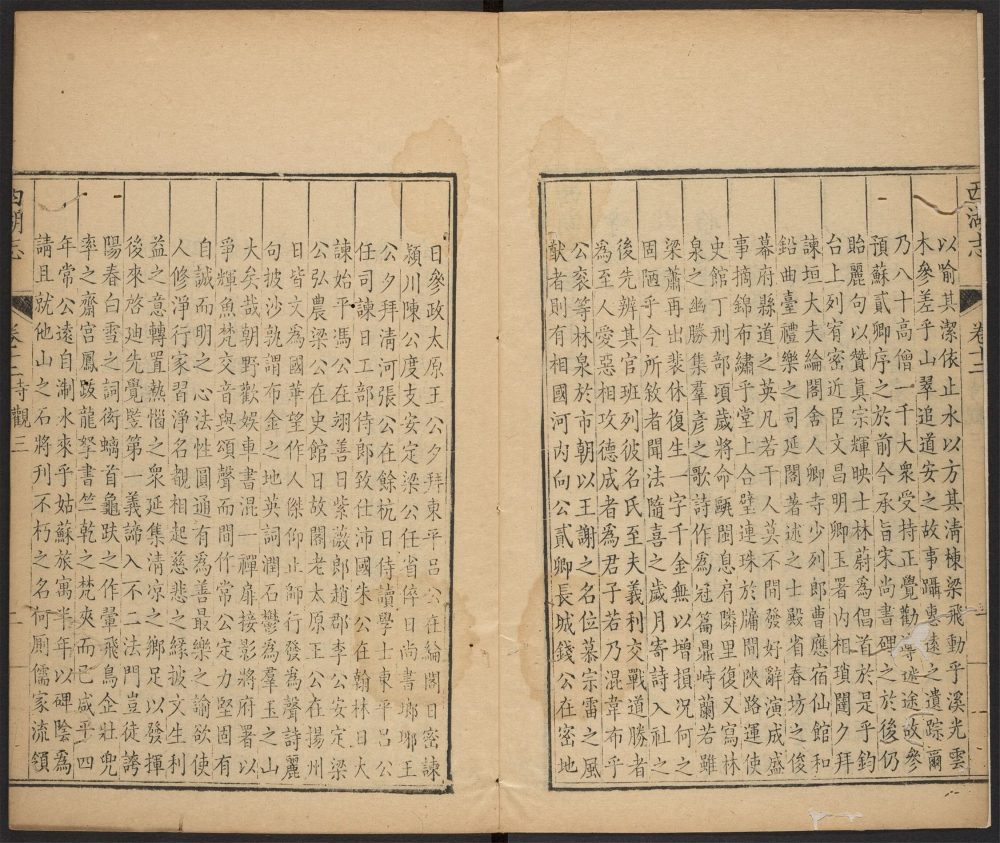 西湖志 卷十三
以喻其潔依止水以方其清棟梁飛動乎溪光雲
木參差乎山翠追道安之故事躡惠遠之遺踪爾
乃八十高僧一千大衆受持正覺勸導迷途故參
預蘇貳卿序之於前今承旨宋尚書碑之於後仍
貽麗句以贊真宗輝映士林蔚爲倡首於是乎鈞
台上列宥密近臣文昌明卿玉署内相瑣闈夕拜
諫垣大夫綸閣舍人卿寺少列郎曹應宿仙館和
鉛曲臺禮樂之司延閣著述之士殿省春坊之俊
幕府縣道之英凡若干人莫不間發好辭演成盛
事摘錦布繡乎堂上合璧連珠於牖間陜路運使
史館丁刑部頃歲將命甌閩息肩隣里復又寫林
泉之幽勝集羣彥之歌詩作爲冠篇鼎峙蘭若雖
梁蕭再出裴休復生一字千金無以增損况何之
固陋乎今所敘者聞法隨喜之歲月寄詩入社之
後先辨其官班列彼名氏至夫義利交戰道勝者
爲至人愛惡相攻德成者爲君子若乃混韋布乎
公衮等林泉於市朝以王謝之名位慕宗雷之風
猷者則有相國河内向公貳卿長城錢公在密地
日參政太原王公夕拜東平呂公在綸閣日密諫
潁川陳公度支安定梁公任省倅日尚書瑯琊王
公夕拜清河張公在餘杭日侍讀學士東平呂公
任司諫日工部侍郎致仕沛國朱公在翰林日大
諫始平馮公在翊善日紫薇郎趙郡李公安定梁
公弘農梁公在史館日故閣老太原王公在揚州
日皆文爲國華望作人傑仰止師行發爲聲詩麗
句披沙孰謂布金之地英詞潤石鬱爲羣玉之山
大矣哉朝野歡娛車書混一禪扉接影將府署以
爭輝魚梵交音與頌聲而間作常公定力堅固有
自誠而明之心法性圓通有爲善最樂之諭欲使
人修淨行家習淨名覩相起慈悲之緣披文生利
益之意轉置熱惱之衆延集清凉之鄉足以發揮
後來啓廸先覺豎第一義諦入不二法門豈徒誇
陽春白雪之詞衒螭首龜趺之作暈飛鳥企壯兜
率之齋宮鳳跋龍拏書竺乾之梵夾而已咸平四
年常公遠自淛水來乎姑蘇旅寓半年以碑陰爲
請且就他山之石將刊不朽之名何厠儒家流領
西湖志 卷十三 寺觀三